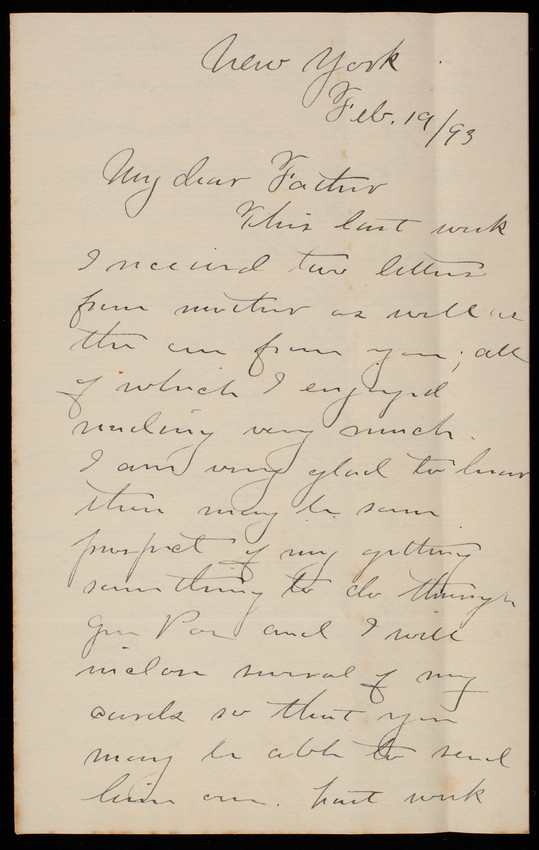 New York
Feb. 19/93
My dear Father
This last week
I received two letters
from mother as well as
the one from you; all
of which I enjoyed
reading very much.
I am very glad to know
there may be some
prospect of my getting
something to do through
Gen Poe and I will
inclose several of my
cards so that you
may be able to send
him one. Last week